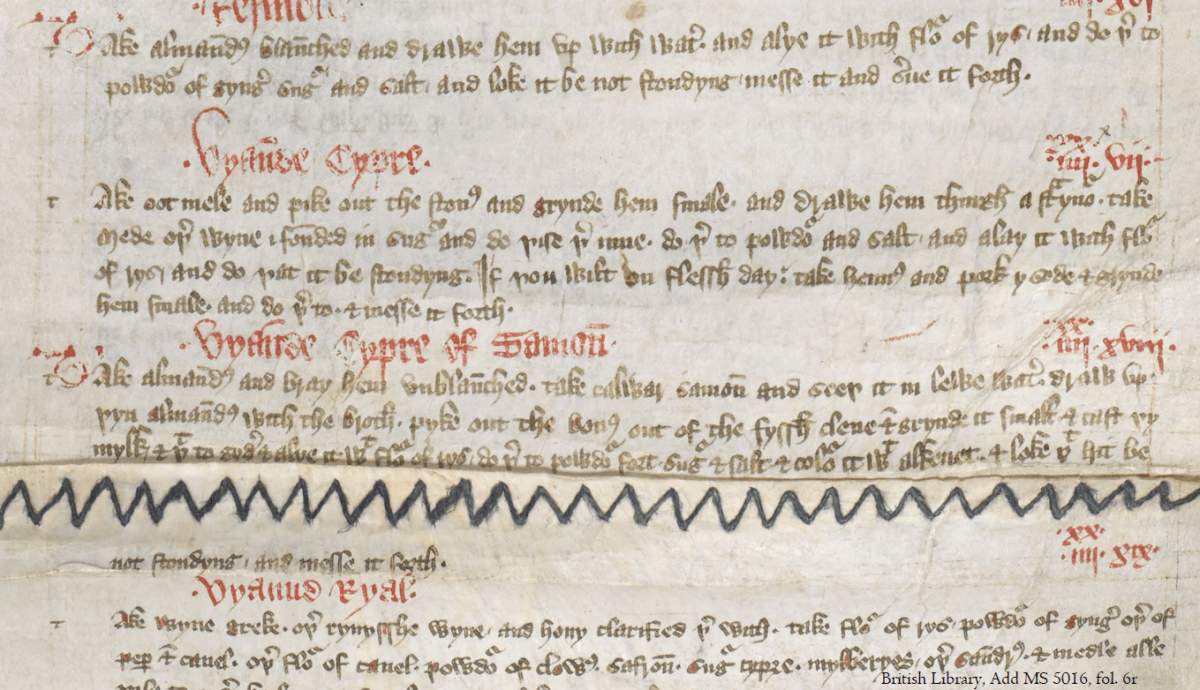 TAke almand᷒ blan̄ched and drawe hem vp with wat̉. and alye it with floᷓ of rys. and do þ̉ to
powdoᷓ of gyng̉ sugᷓ and salt. and loke it be not stondyng. messe it and s̉ue it forth.
Vyan̄de Cypre. .iiii.ˣˣ xvii.
t Ake oot mele and pike out the ston᷒ and grynde hem smale. and drawe hem thurgh a stᷓyno᷑. take
mede oþ̉ wyne ifonded in sugᷓ and do þise þ̉ inne. do þ̉ to powdoᷓ and salt. and alay it with floᷓ
of rys. and do þat it be stondyng. If þou wilt on flessh day: take henn᷒ and pork ysode & grynde
hem smale. and do þ̉ to. & messe it forth.
Vyan̄de Cypre of Samon̄. .iiii.ˣˣ xviii.
TAke almand᷒ and bray hem vnblan̄ched. take calwar samon̄ and seeþ it in lewe wat̉. draw vp
þyn alman̄d᷒ with the broth. pyke out the bon᷒ out of the fyssh clene & grynde it small & cast þy
mylk & þᵗ to gyd̉ & alye it wᵗ floᷓ of rys. do þ̉ to powdoᷓ fort. sugᷓ & salt & coloᷓ it wᵗ alkenet. & loke þᵗ hit be
not stondyng. and messe it forth. .iiii.ˣˣ xix.
Vyaund Ryal.
t Ake wyne greke. oþ̉ rynysshe wyne. and hony clarified þ̉ with. take floᷓ of rys. powdoᷓ of gyng̉ oþ̉ of
pep̉ & canel. oþ̉ floᷓ of canel. powdoᷓ of clow᷒. safron̄. sugᷓ cypre. mylberyes. oþ̉ san̄dr᷒. & medle alle
British Library, Add MS 5016, fol. 6r